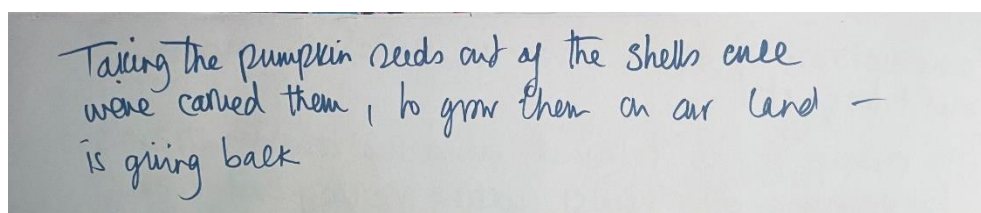 Taking the pumpkin seeds out of the shells once
we're carved them, to grow them on our land –
is giving back